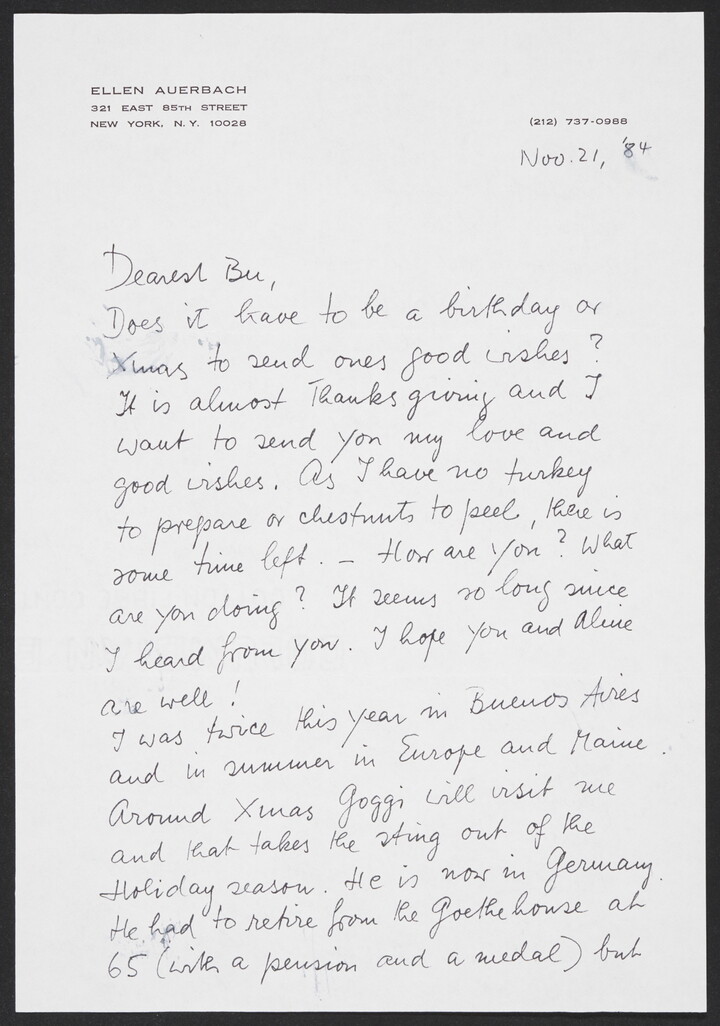 ELLEN AUERBACH
321 EAST 85TH STREET
NEW YORK, N.Y. 10028
(212) 737-0988
Nov. 21, '84
Dearest Bu,
Does it have to be a birthday or
Xmas to send ones good wishes?
It is almost Thanksgiving and I
want to send you my love and
good wishes. As I have no turkey
to prepare or chestnuts to peel, there is
some time left. – How are you? What
are you doing? It seems so long since
I heard from you. I hope you and Aline
are well!
I was twice this year in Buenos Aires
and in summer in Europe and Maine.
Around Xmas Goggi will visit me
and that takes the sting out of the
Holiday season. He is now in Germany.
He had to retire from the Goethe house at
65 (with a pension and a medal) but